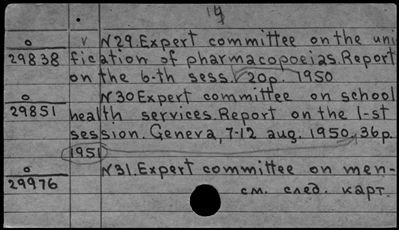 14
0 v N29. Expert committee on the uni
29838 fication of pharmacopoeias. Report
on the 6-th sess. 20p. 1950
0 N30 Expert committee on school
29851 health services. Report on the 1-st
session. Geneva, 7-12 aug. 1950, 36p.
1951
0 N31. Expert committee on men-
29976 см. след. карт.